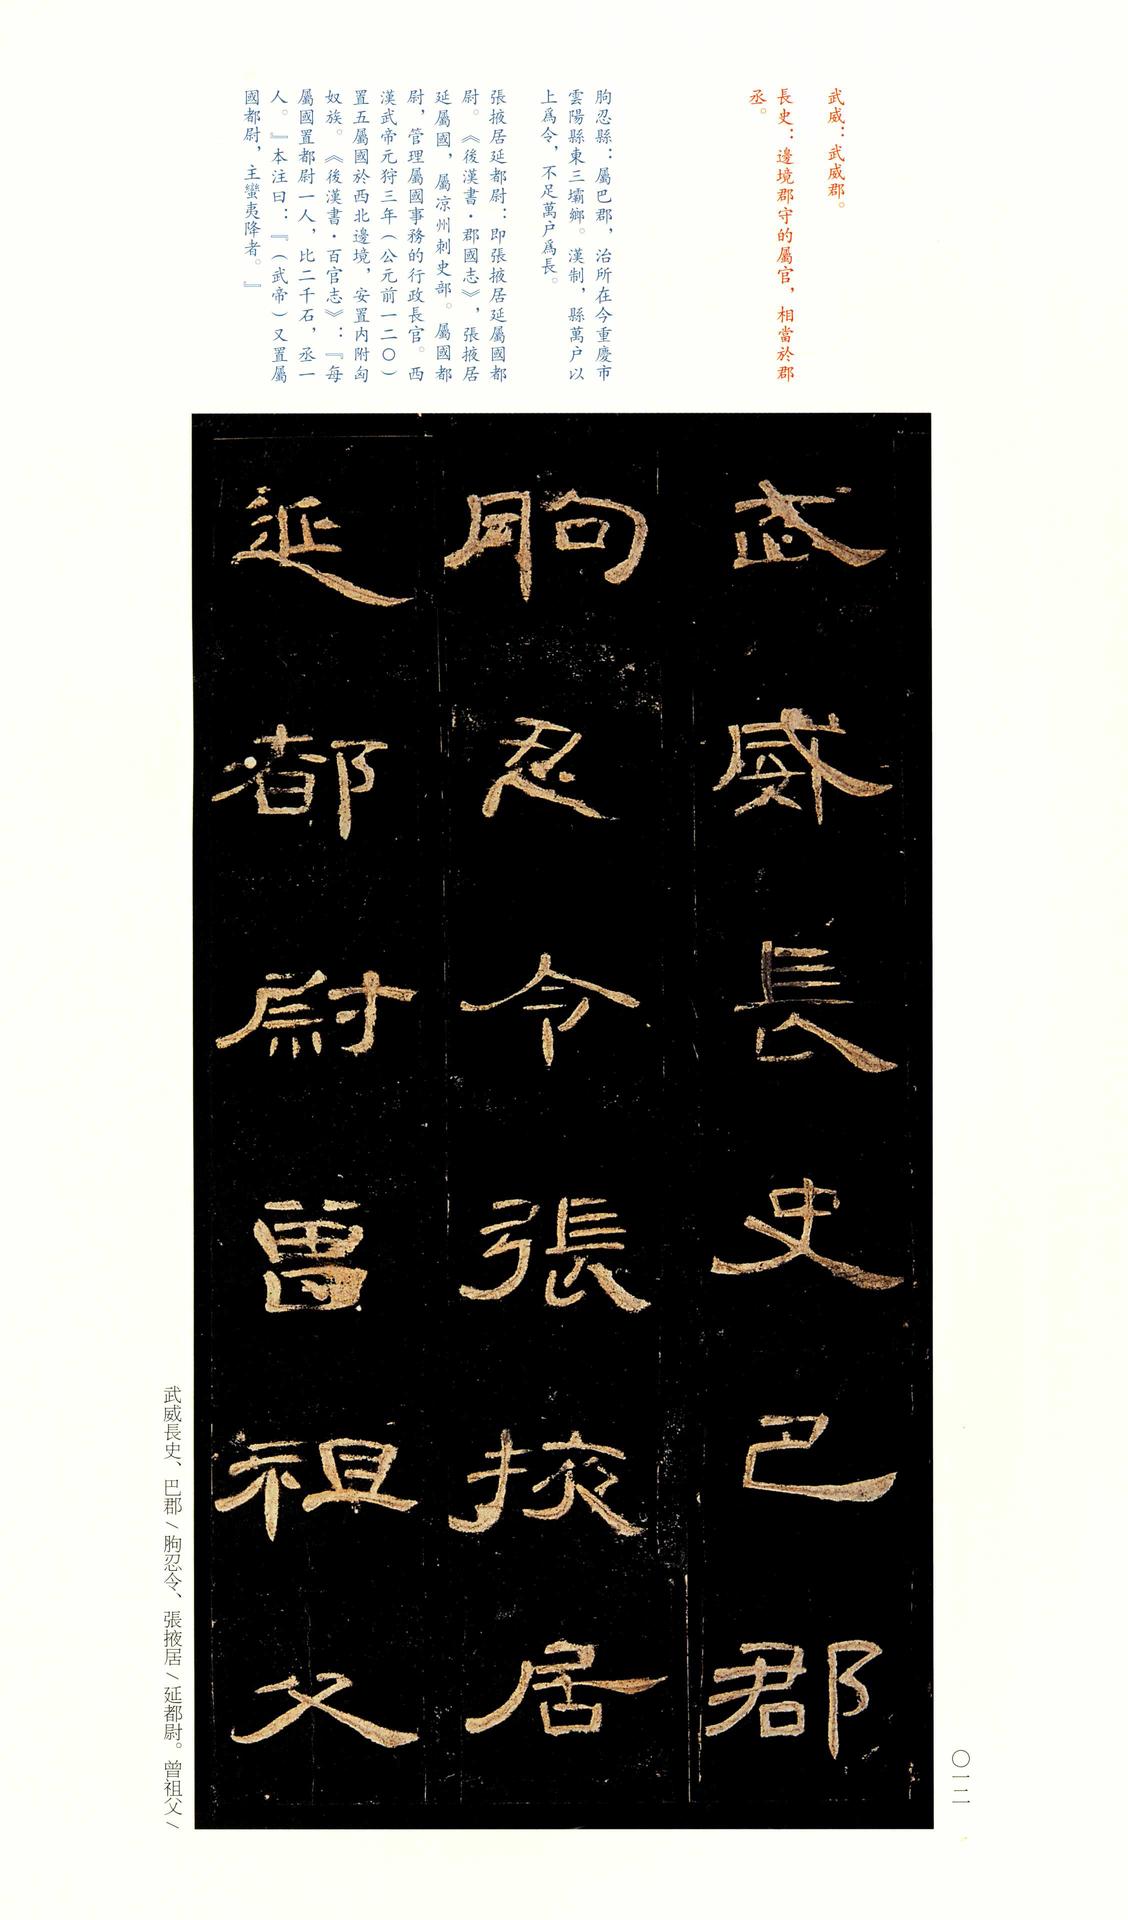 武威：武威郡。
長史：邊境郡守的屬官，相當於郡
丞。
朐忍縣：屬巴郡，治所在今重慶市
雲陽縣東三壩鄉。漢制，縣萬户以
上爲令，不足萬户爲長。
張掖居延都尉：即張掖居延屬國都
尉。《後漢書·郡國志》，張掖居
延屬國，屬凉州刺史部。屬國都
尉，管理屬國事務的行政長官。西
漢武帝元狩三年（公元前一二〇）
置五屬國於西北邊境，安置内附匈
奴族。《後漢書·百官志》：『每
屬國置都尉一人，比二千石，丞一
人。』本注曰：『（武帝）又置屬
國都尉，主蠻夷降者。』
武威長史巴郡
朐忍令張掖居
延都尉曾祖父
武威長史、巴郡/朐忍令、張掖居/延都尉。曾祖父/
〇一二